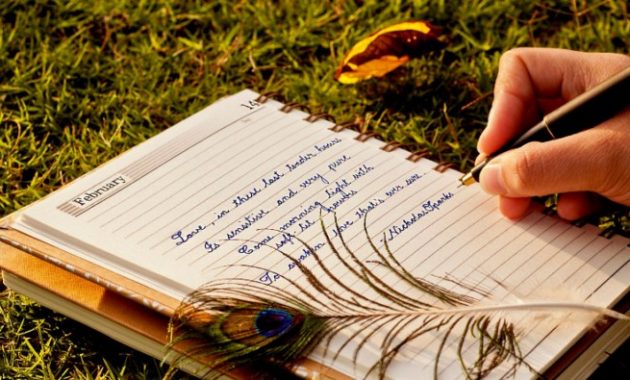 14
February
Love, in these last tender hours
Is sensitive and very pure
Come morning light with
soft-lit powers
To awaken love that's ever sure
Nicholas Sparks